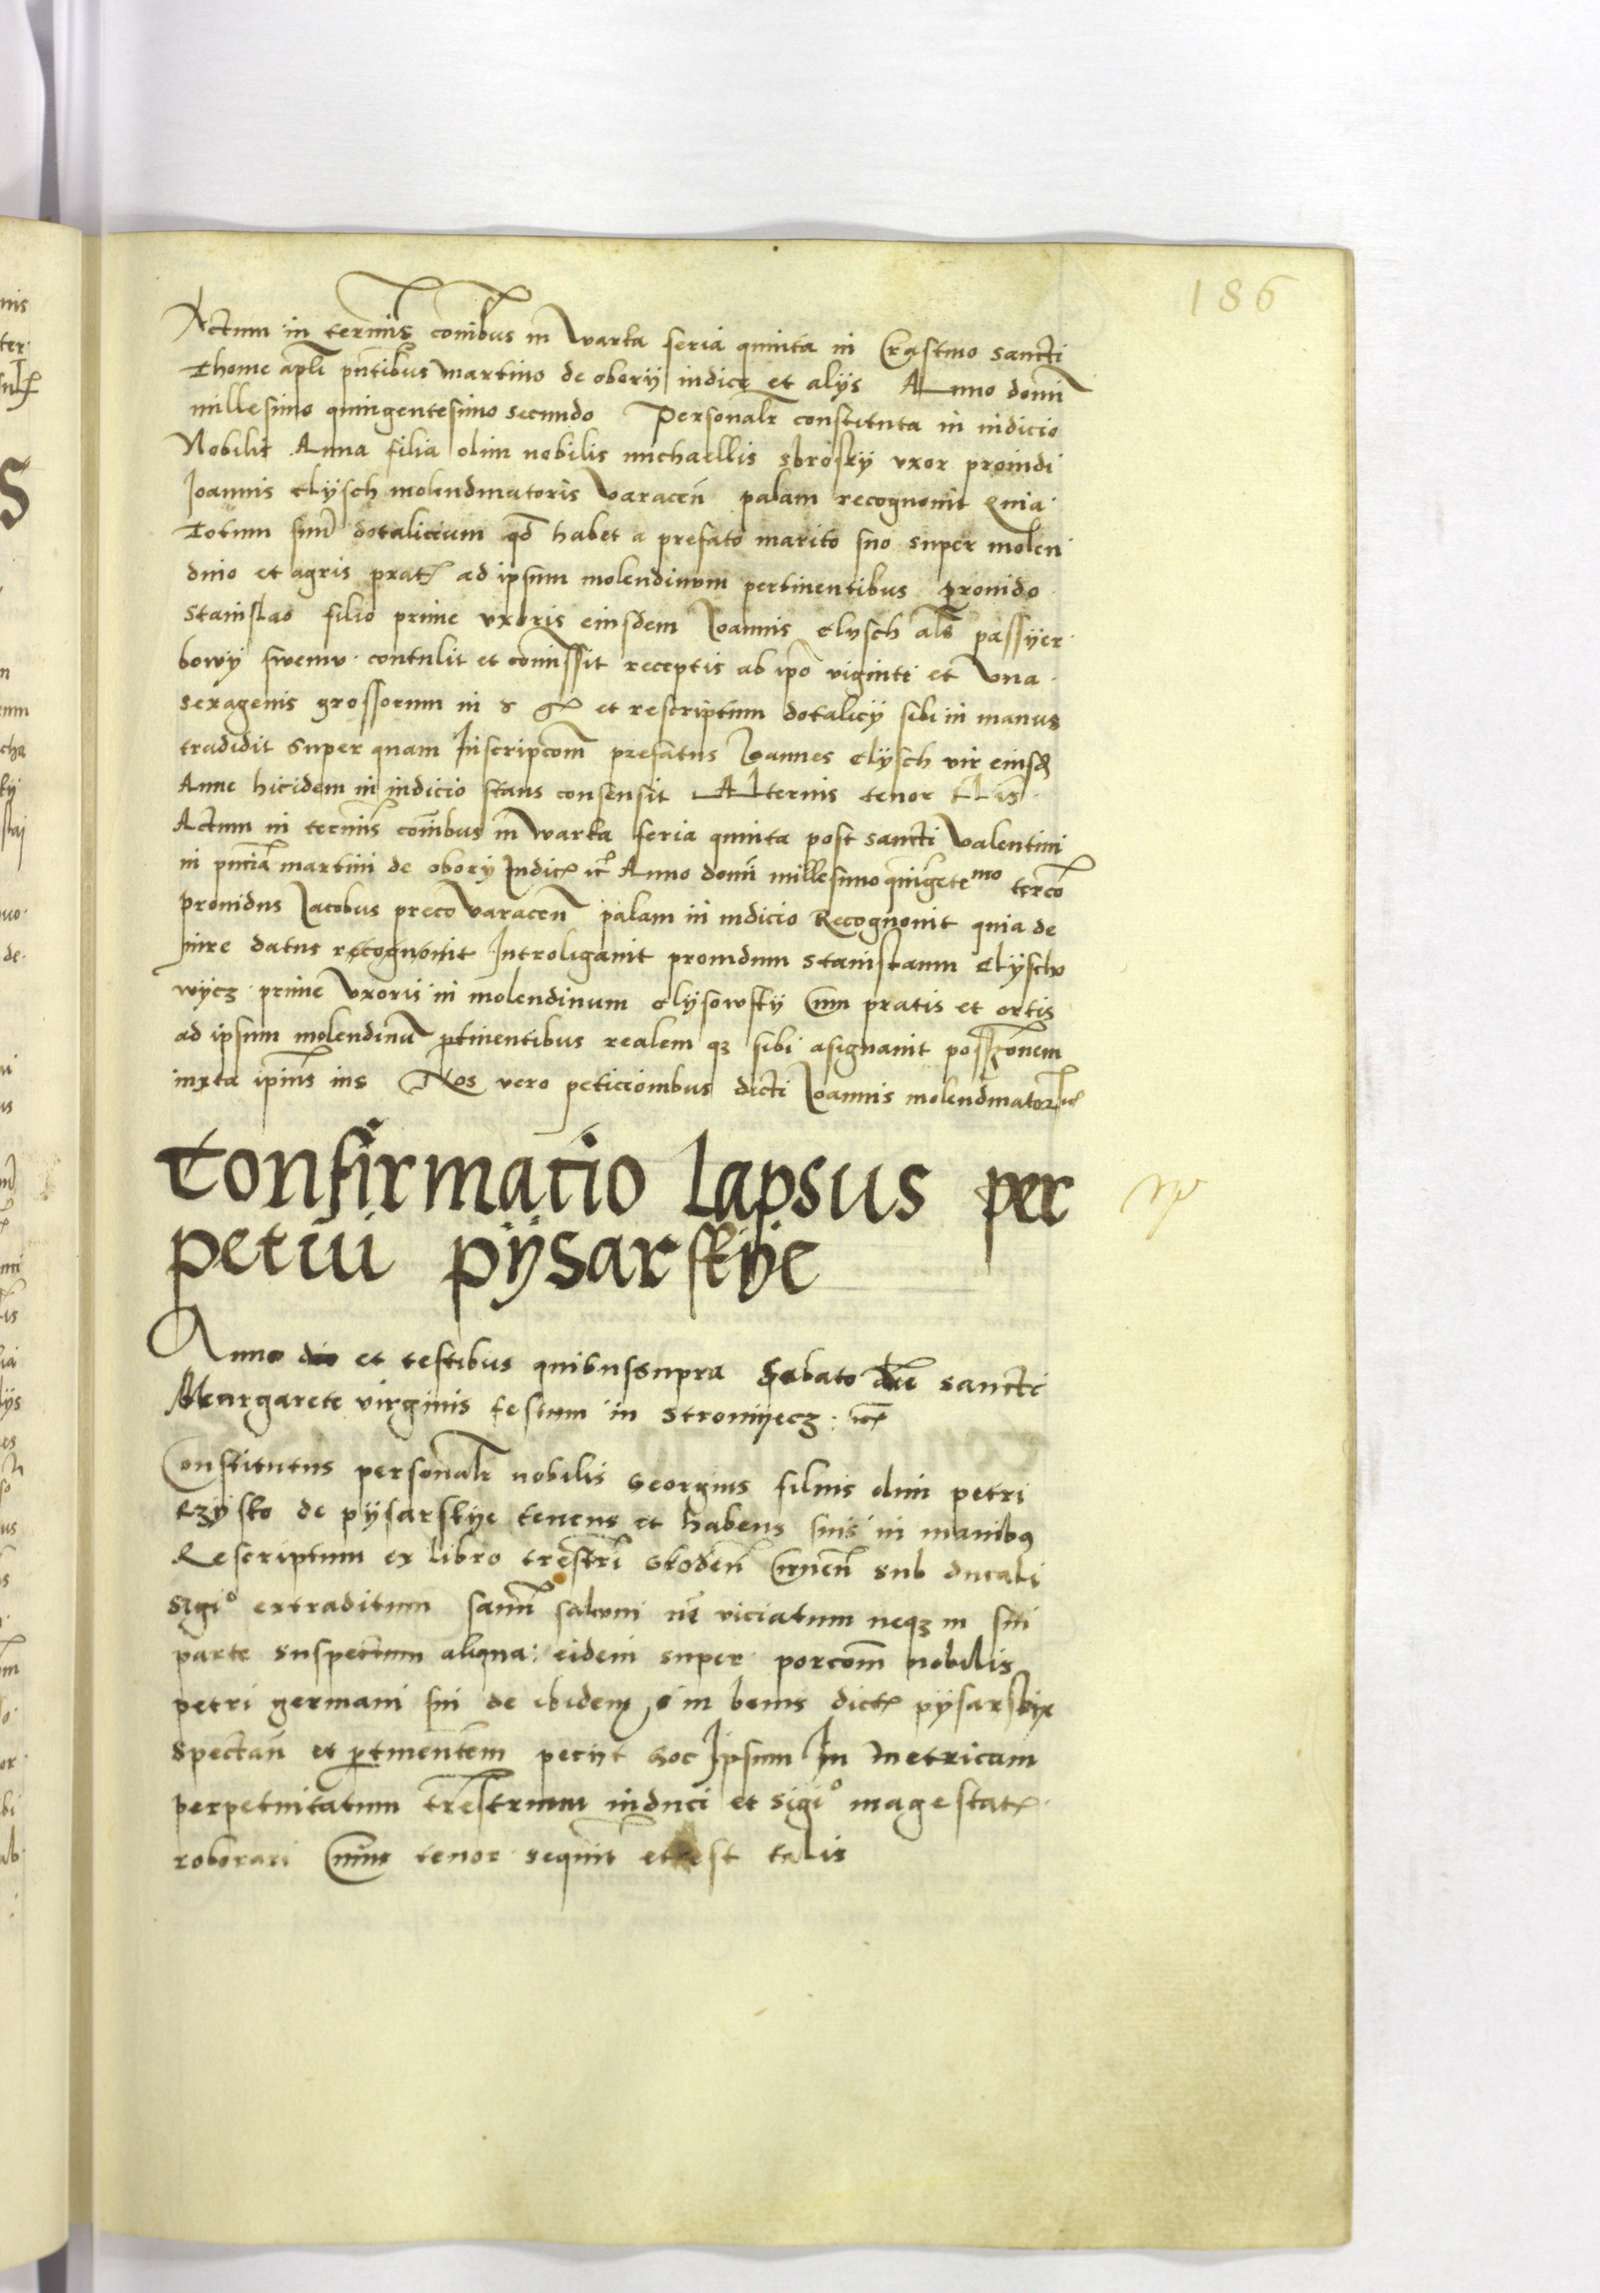 186
Actum in terminis coımbus in Warka feria quinta in Crastino sancti
Thome apli pntibus Martino de obory iudice et alys Anno domi
millesimo quingentesimo secundo Personalr constituta in iudicio
Nobilis Anna filia olim nobilis michaellis sbrosky vxor prouidi
Joannis Elysch molendinatoris Varacen palam recognouit Quia
Totum suum dotalicium qd habet a prefato marito suo super molen
dino et agris prat ad ipsum molendinum pertinentibus prouido
Stanislao filio prime vxoris eiusdem Joannis Elysch als passyer
bowy swemv contulit et comissit receptis ab ipo viginti et vna
sexagenis grossorum in et rescriptum dotalicy sibi in manus
tradidit Super quam Inscripcom prefatus Joannes Elysch vir eiusd
Anne hicidem in iudicio stans consensit Alterius tenor
Actum in terminis comibus in warka feria quinta post sancti Valentini
in pncia martini de obory Judice etc Anno domi millesimo quigete mo tercio
prouidus Jacobus preco varacen palam in iudicio Recognouit quia de
iure datus recognouit Introligauit prouidum Stanislaum Elyscho
wycz prime Vxoris in molendinum elysowsky Cum pratis et ortis
ad ipsum molendinu ptinentibus realem qz sibi asignauit possionem
iuxta ipius ius Nos vero peticionibus dicti Joannis molendinator etc
Confirmacio lapsus per
petui pysarskye
Anno dio et testibus quibussupra Sabato die sancti
Margarete virginis festum in Stromyecz etc
Constitutus personalr nobilis Georgius filius olim petri
Czysko de pysarskye tenens et habens suis in manibus
Rescriptum ex libro trestri Groden Cernen sub ducali
Sigio extraditum sanu saluum no viciatum neqz in sui
parte suspectum aliqua: eidem super porcom nobilis
petri germani sui de ibidem in bonis dict pysarskye
spectan et ptinentem pecyt hoc Ipsum In metricam
perpetuitatum trestrium induci et sigio magestat
roborari Cuius tenor sequit et est talis